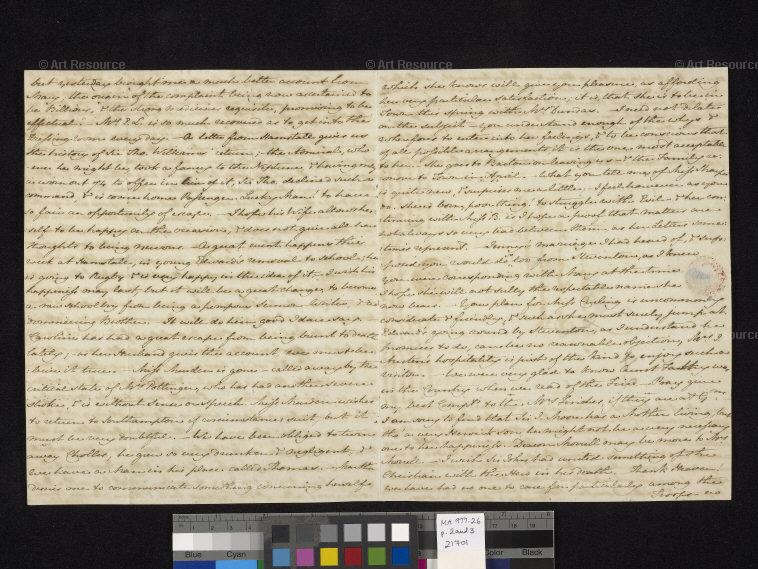 © Art Resource
© Art Resource
© Art Resource
but yesterday brought me a much better account from
Mary, the origin of the complaint being now ascertained to
be Billious, & the strong medicines requisite, promising to be
effectual. - Mrs E. L. is so much recovered as to get into the
Dressing-room every day. - A letter from Hamstall gives us
the history of Sir Tho. Williams' return; - the Admiral, who-
-ever he might be, took a fancy to the Neptune, & having only
a worn out 74 to offer in lieu of it, Sir Tho. declined such a
command, & is come home Passenger. Lucky Man! to have
so fair an opportunity of escape. - I hope his Wife allows her-
self to be happy on the occasion, & does not give all her
thoughts to being nervous. - A great event happens this
week at Hamstall, in young Edward's removal to school; he
is going to Rugby & is very happy in the idea of it. - I wish his
happiness may last, but it will be a great change, to become
a raw school boy from being a pompous Sermon-Writer, & a
domineering Brother. - It will do him good I dare say. -
Caroline has had a great escape from being burnt to death
lately; - as her Husband gives the account, we must be-
lieve it true. - Miss Murden is gone - called away by the
critical state of Mrs Pottinger, who has had another severe
stroke, & is without Sense or Speech. Miss Murden wishes
to return to Southampton if circumstances suit, but it
must be very doubtful. - We have been obliged to turn
away Cholles, he grew so very drunken & negligent, &
we have a Man in his place called Thomas. - Martha
desires me to communicate something concerning herself
which she knows will give you pleasure, as affording
her very particular satisfaction; it is, that she is to be in
Town this spring with Mrs Dundas. - I need not dilate
on the subject - you understand enough of the whys &
wherefores to enter into her feelings, & to be conscious that
of all possible arrangements, it is the one most acceptable
to her. - She goes to Barton on leaving us - & the Family re-
move to Town in April. - What you tell me of Miss Sharpe
is quite new, & surprises me a little; - I feel however as you
do. She is born, poor thing! to struggle with Evil - & her con-
tinuing with Miss B. is I hope a proof that matters are
not always so very bad between them, as her Letters some-
times represent. - Jenny's marriage I had heard of, & sup-
posed you would do so too from Steventon, as I knew
you were corresponding with Mary at the time.
I hope she will not sully the respectable name she
now bears. - Your plan for Miss Curling is uncommonly
considerate & friendly, & such as she must surely jump at.
Edward's going round by Steventon, as I understand he
promises to do, can be no reasonable objection, Mrs J.
Austen's hospitality is just of the kind to enjoy such a
visitor. - We were very glad to know Aunt Fatty was
in the Country when we read of the Fire. - Pray give
my best Compts to the Mrs Finches, if they are at Gm. -
I am sorry to find that Sir J. Moore has a Mother living, but
tho' a very Heroick son, he might not be a very necessary
one to her happiness. - Deacon Morrell may be more to Mrs
Morrell. - I wish Sir John had united something of the
Christian with the Hero in his death. - Thank Heaven!
we have had no one to care for particularly among the
Troops - no
Blue
Cyan
Color
Black
MA 977.26
p. 2 and 3
21701